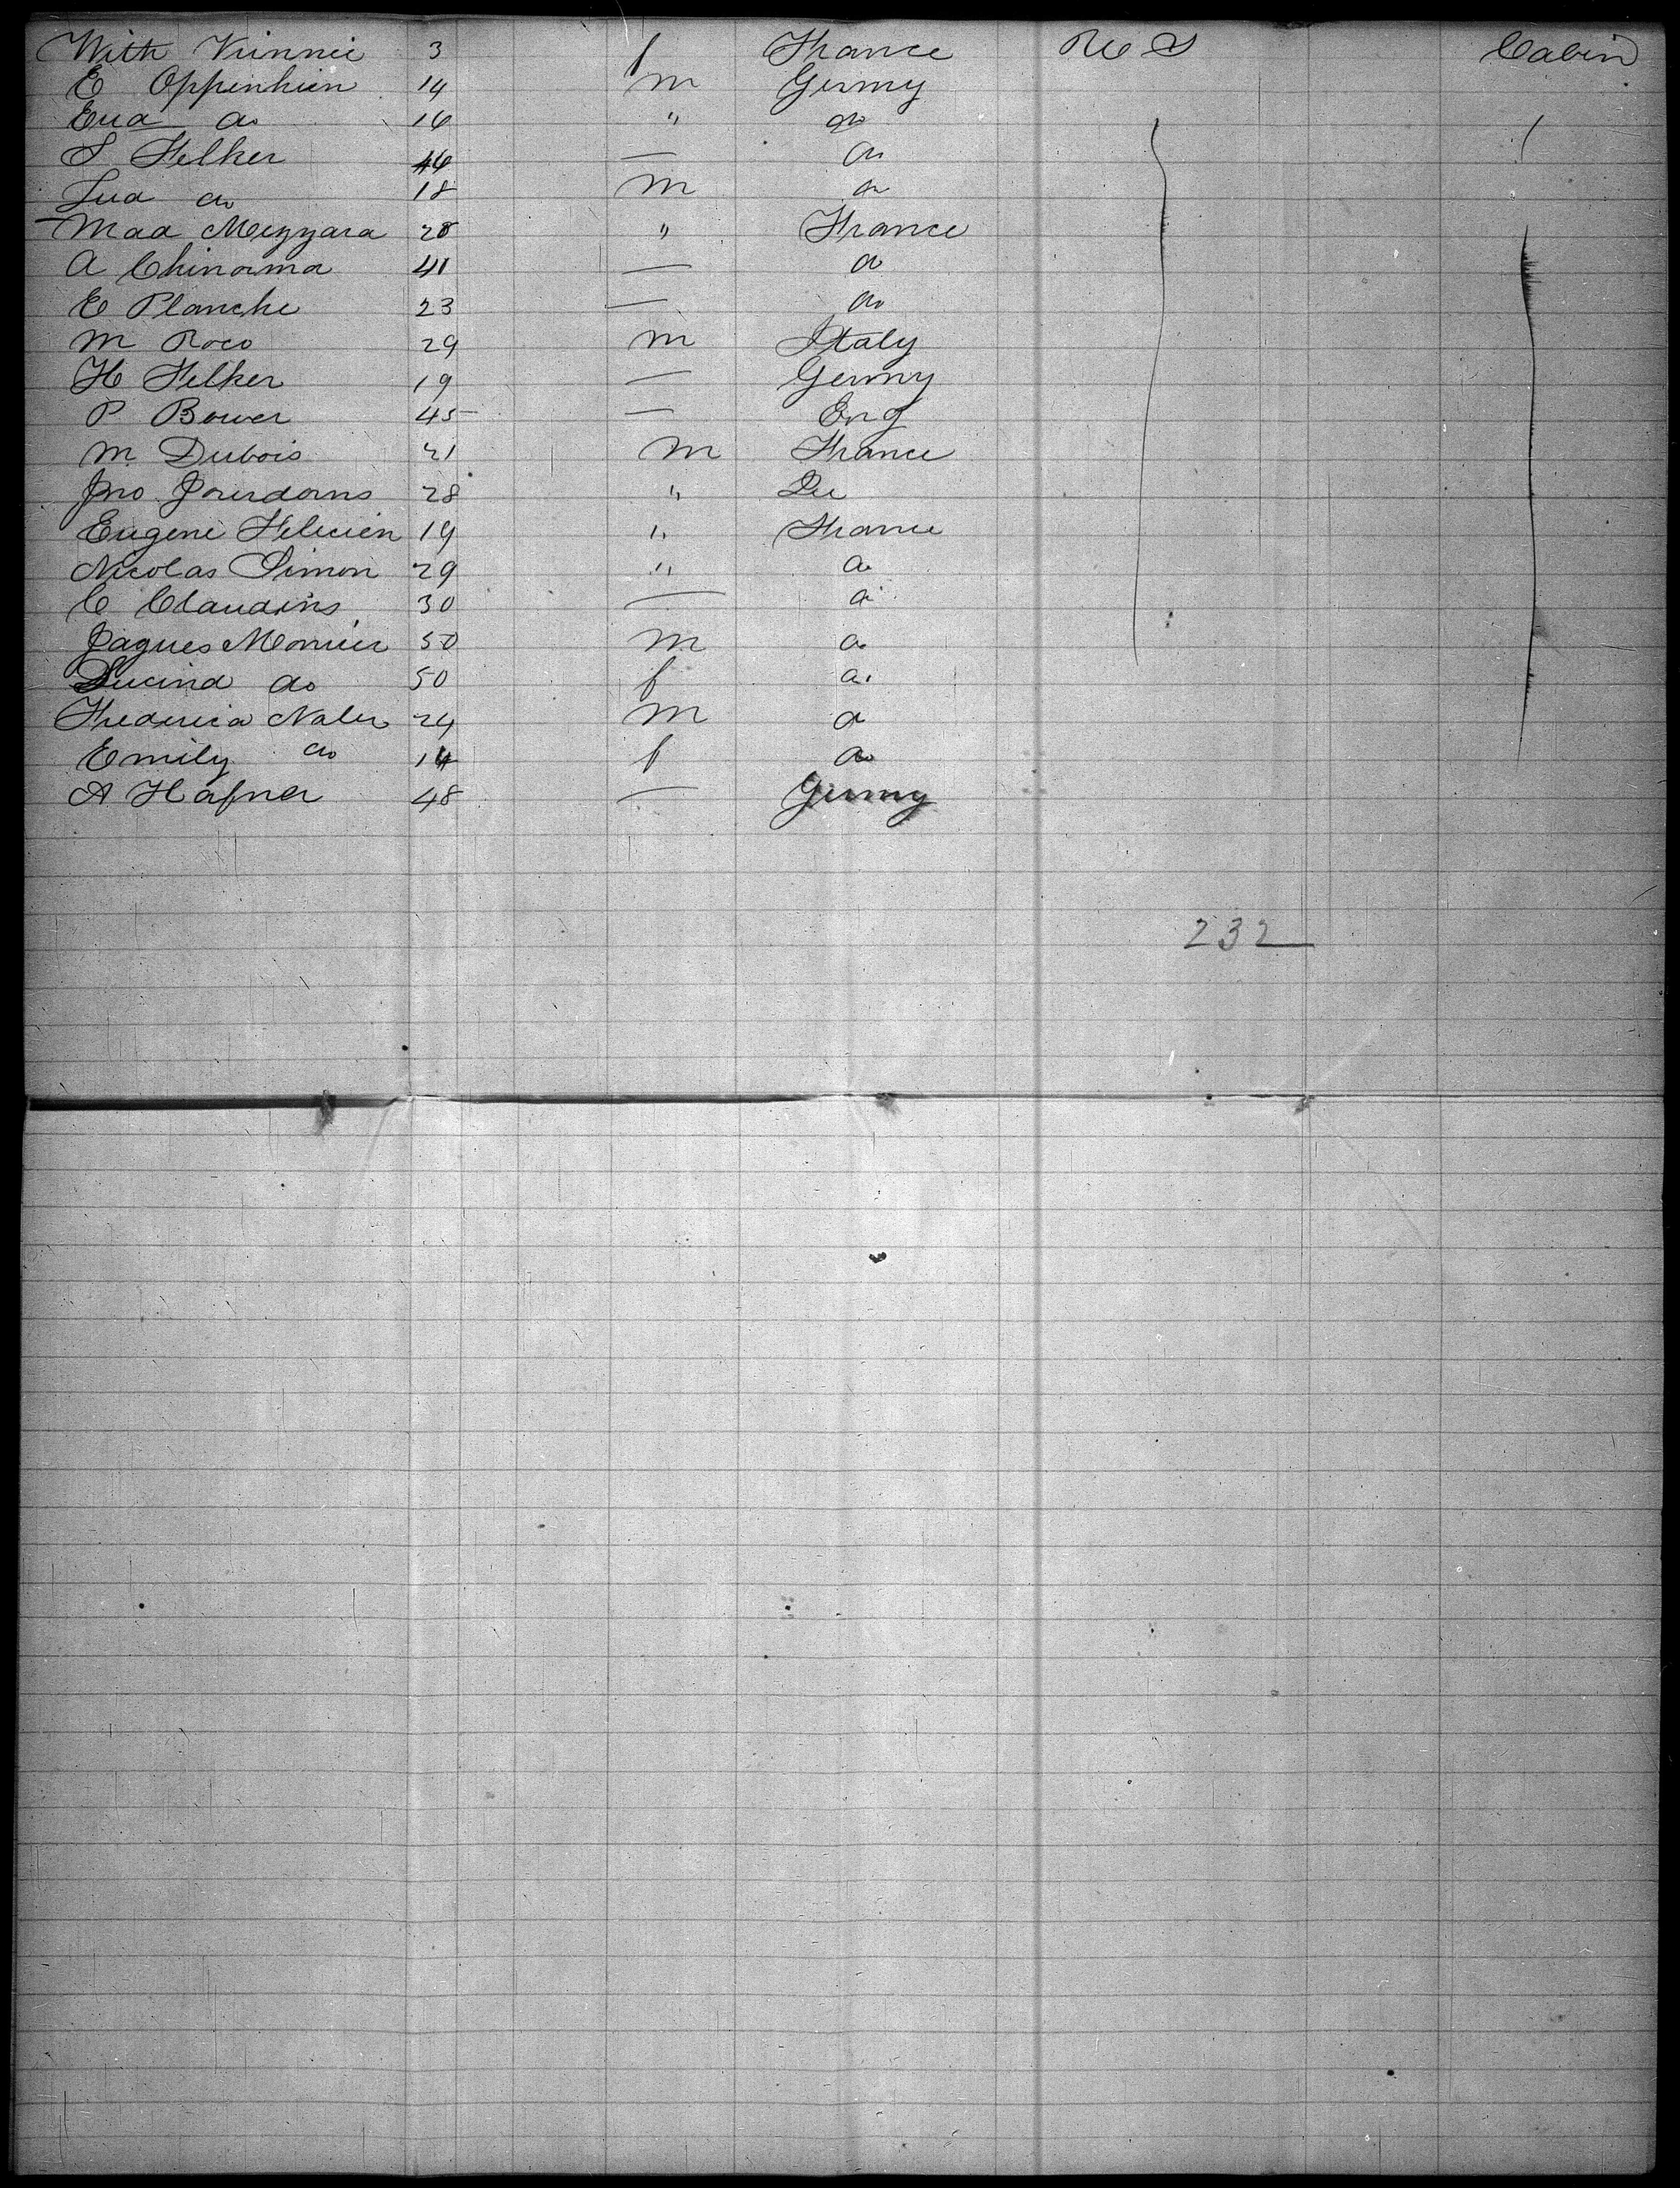 With Vinnie 3 f France U S Cabin
E Oppenhien 14 m Germy
Eua do 16 " do
S Felker 46 — do
Lua do 18 m do
Mad Mezzara 28 " France
A Chinorma 41 — do
E Planche 23 — do
M Roco 29 m Italy
H Felker 19 — Germy
P Bower 45 — Eng
M. Dubois 21 m France
Jno Jourdans 28 "
Eugene Felicien 19 " France
Nicolas Simon 29 " do
C Claudins 30 — do
Jaques Monier 50 m do
Lucina do 50 f do
Frederica Naler 24 m do
Emily do 14 f do
A Hafner 48 — Germy
232